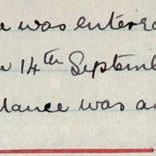 was enterg
14th Septemb
dance was a